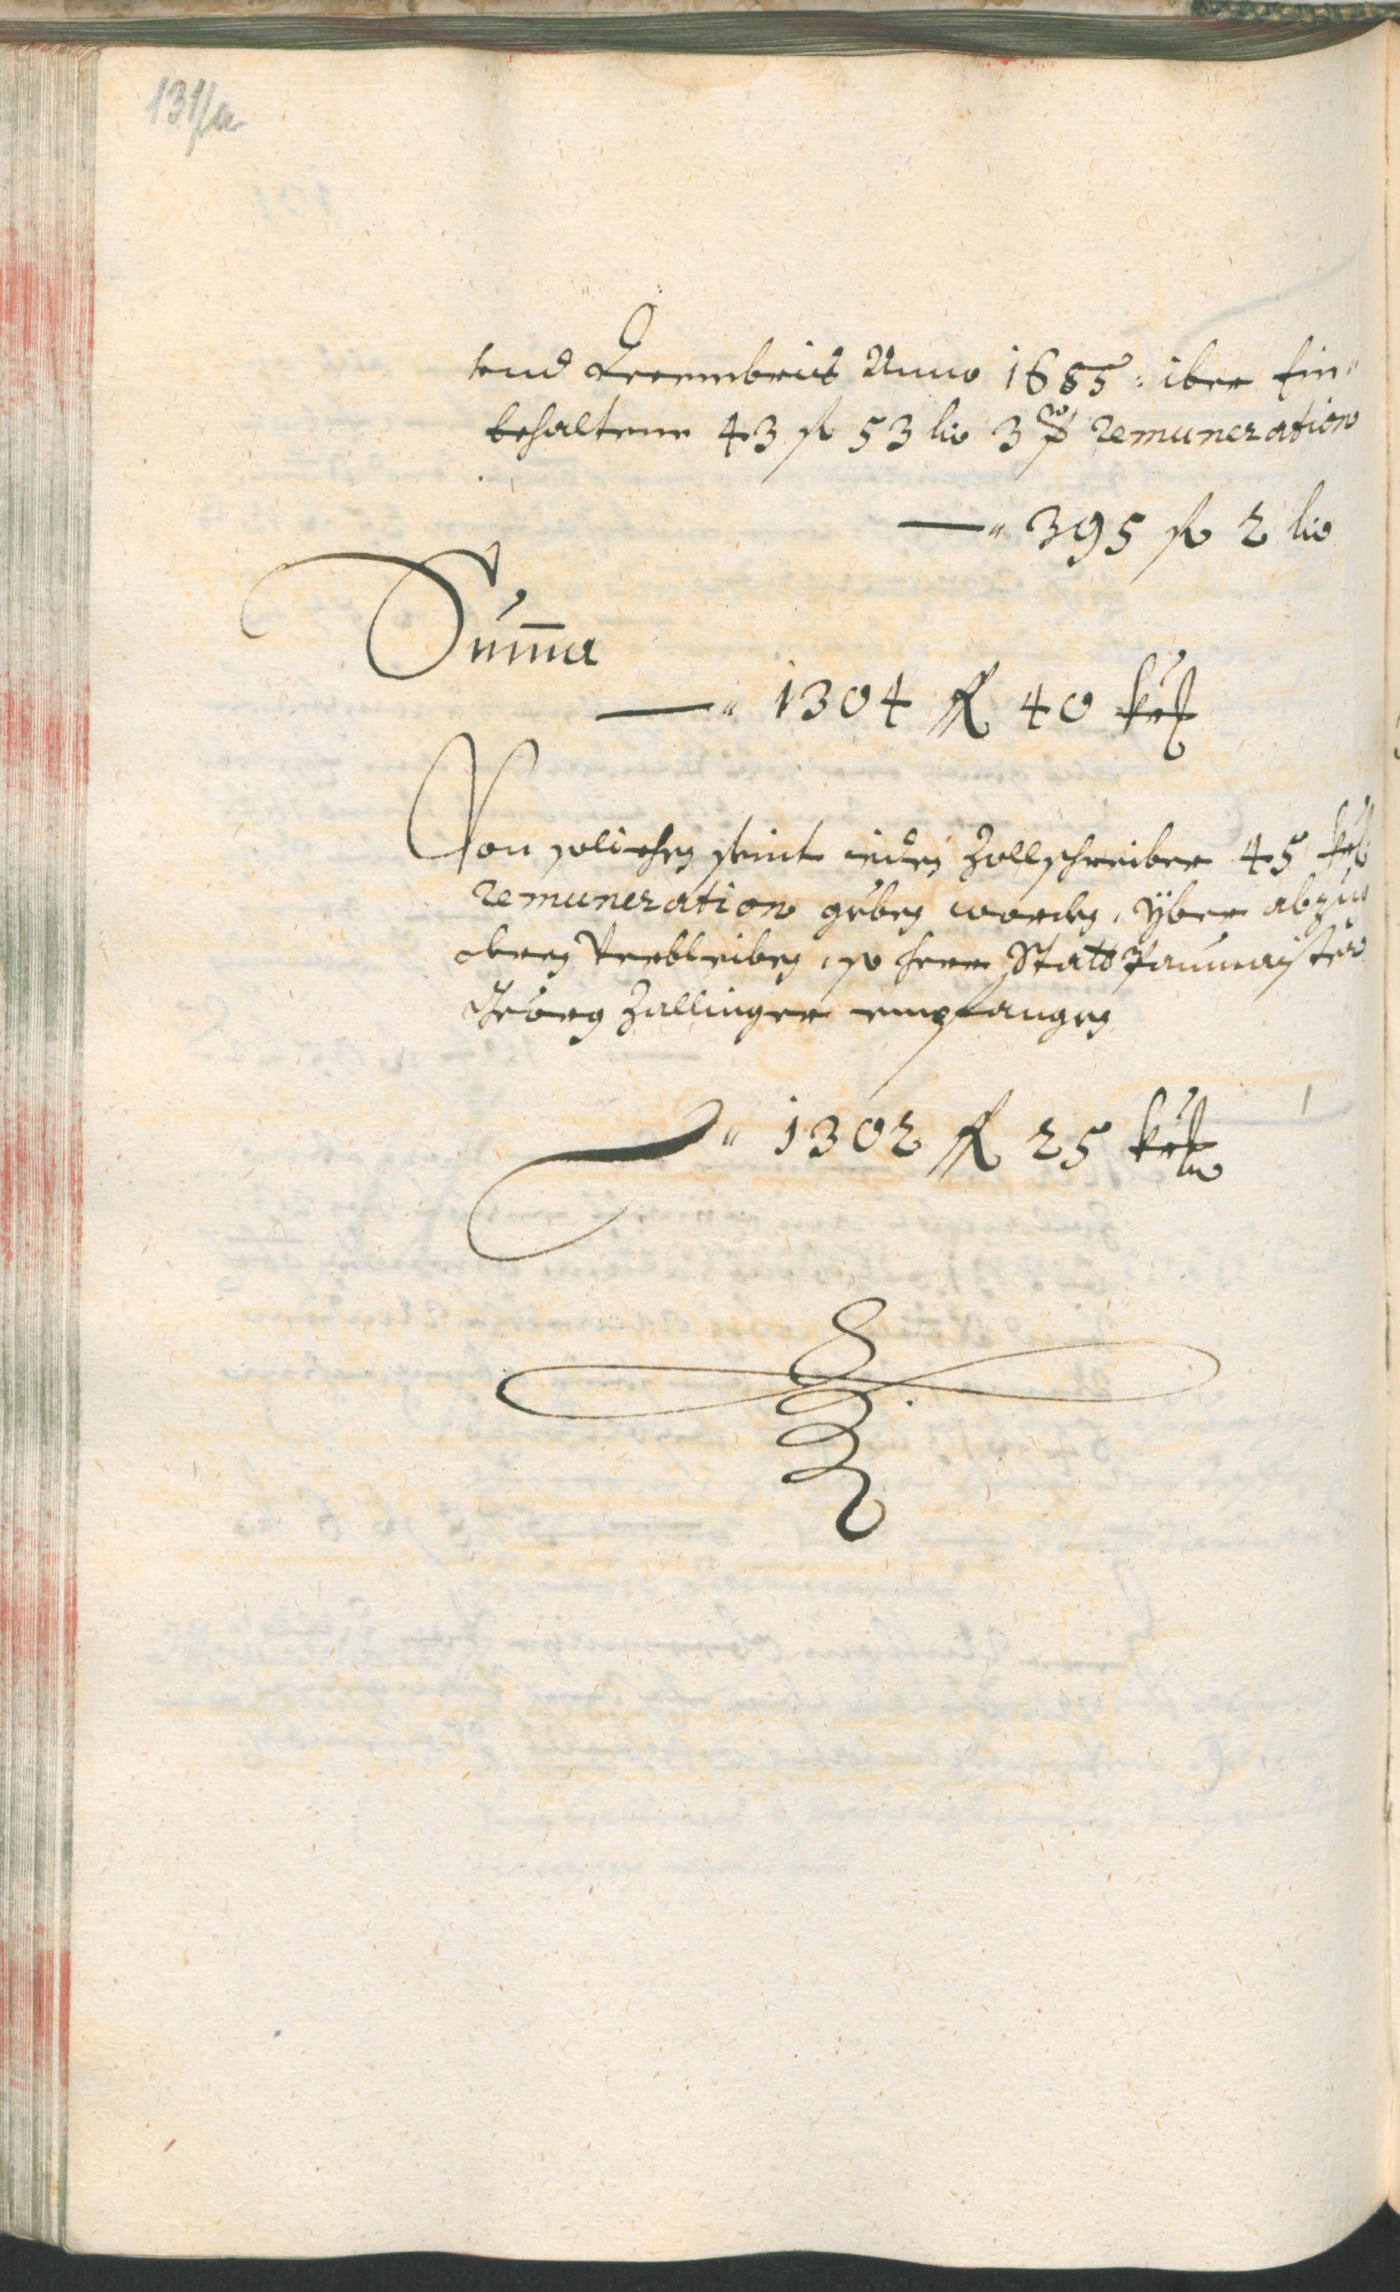 131/a
tend Decembris Anno 1655: iber ein-
behaltene 43 fl 53 kr 3 remuneration
395 fl 2 kr
Summa
1304 fl 40 kr
Von solichen seint ieden Zollschreiber 45 kr
remuneration geben worden, yber abzug
deren verbleiben, so herr Statt Paumaister
Georg Zallinger empfangen
1302 fl 25 kr